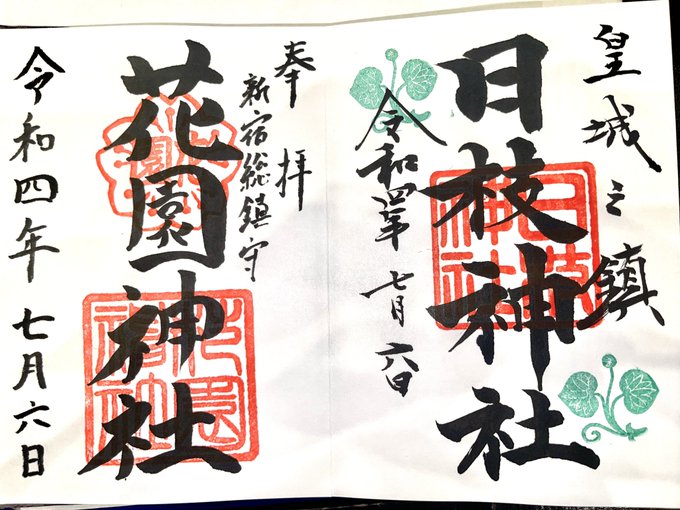 皇城之鎮
日枝神社
令和四年 七月 六日
奉拝
新宿総鎮守
花園神社
令和四年 七月六日